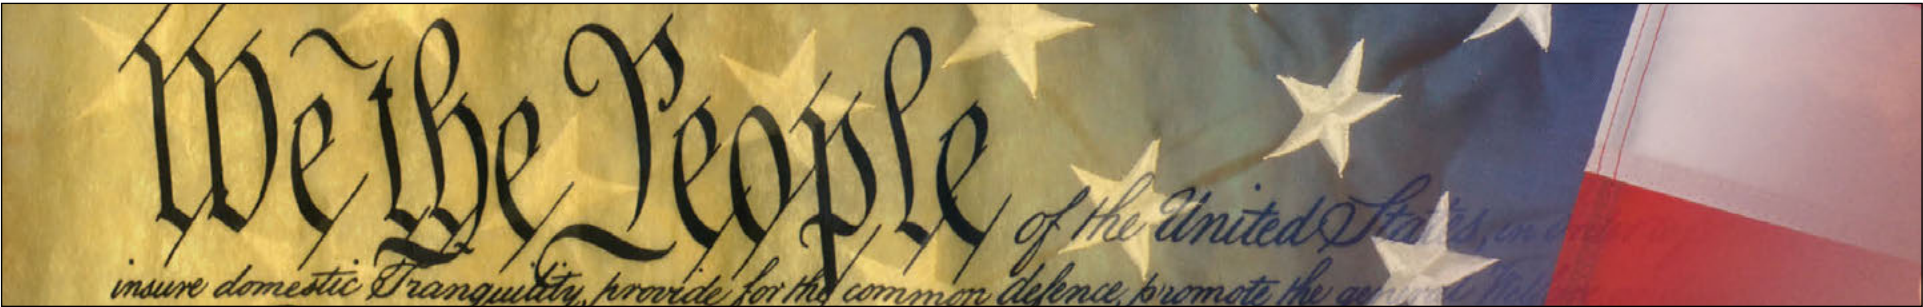 We the People of the United States, in order
insure domestic Tranquility, provide for the common defence, promote the general Welfare